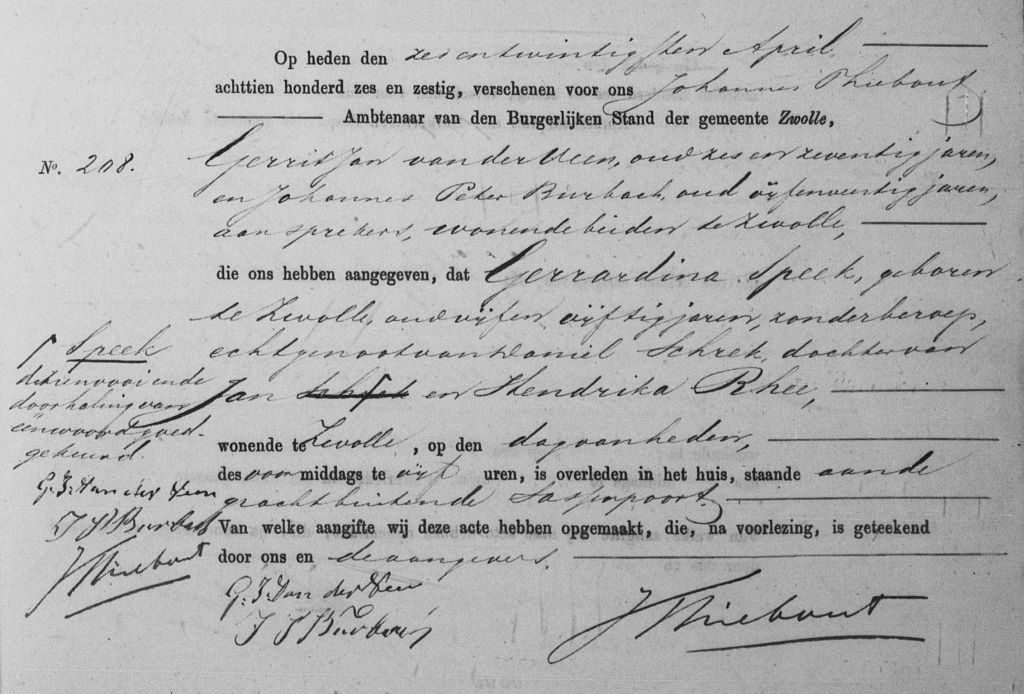 Op heden den zesentwintigsten April
achttien honderd zes en zestig, verschenen voor ons Johannes Thiebout
Ambtenaar van den Burgerlijken Stand der gemeente Zwolle,
No. 208.
Gerrit Jan van der Veen, oud zes en zeventig jaren,
en Johannes Peter Burbach, oud vijfenveertig jaren,
aansprekers, wonende beiden te Zwolle,
die ons hebben aangegeven, dat Gerrardina Speek, geboren
te Zwolle, oud vijfen vijftig jaren, zonder beroep,
echtgenoot van Daniel Schrek, dochter van
Jan en Hendrika Rhee,
wonende te Zwolle, op den dag van heden,
des voormiddags te vijf uren, is overleden in het huis, staande aan de
gracht buiten de Sassenpoort
Van welke aangifte wij deze acte hebben opgemaakt, die, na voorlezing, is geteekend
door ons en de aangevers.
G. J. Van der Veen
J P Burbach
J Thiebout
Speek
deze renvooi en de
doorhaling van
een woord goed-
gekeurd.
G. J. Van der Veen
J P Burbach
J Thiebout